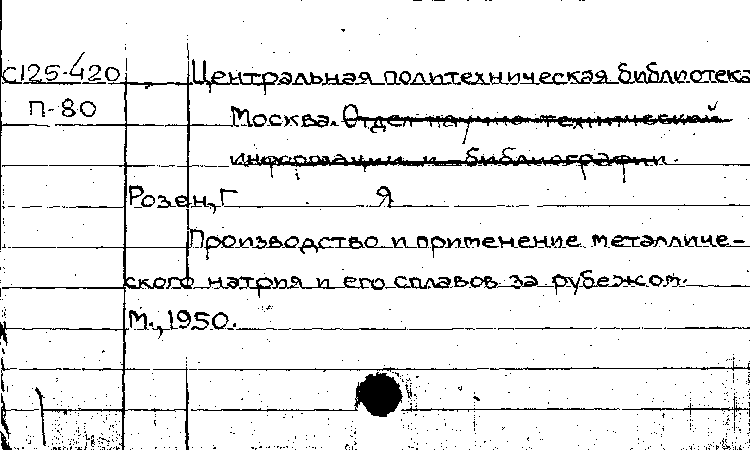 С125-420 Центральная политехническая библиотека
П-80 Москва. Отдел научно-технической
информации и библиографии.
Розен, Г Я
Производство и применение металличе-
ского натрия и его сплавов за рубежом.
М., 1950.